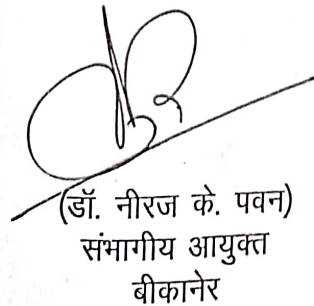 (डॉ. नीरज के. पवन)
संभागीय आयुक्त
बीकानेर